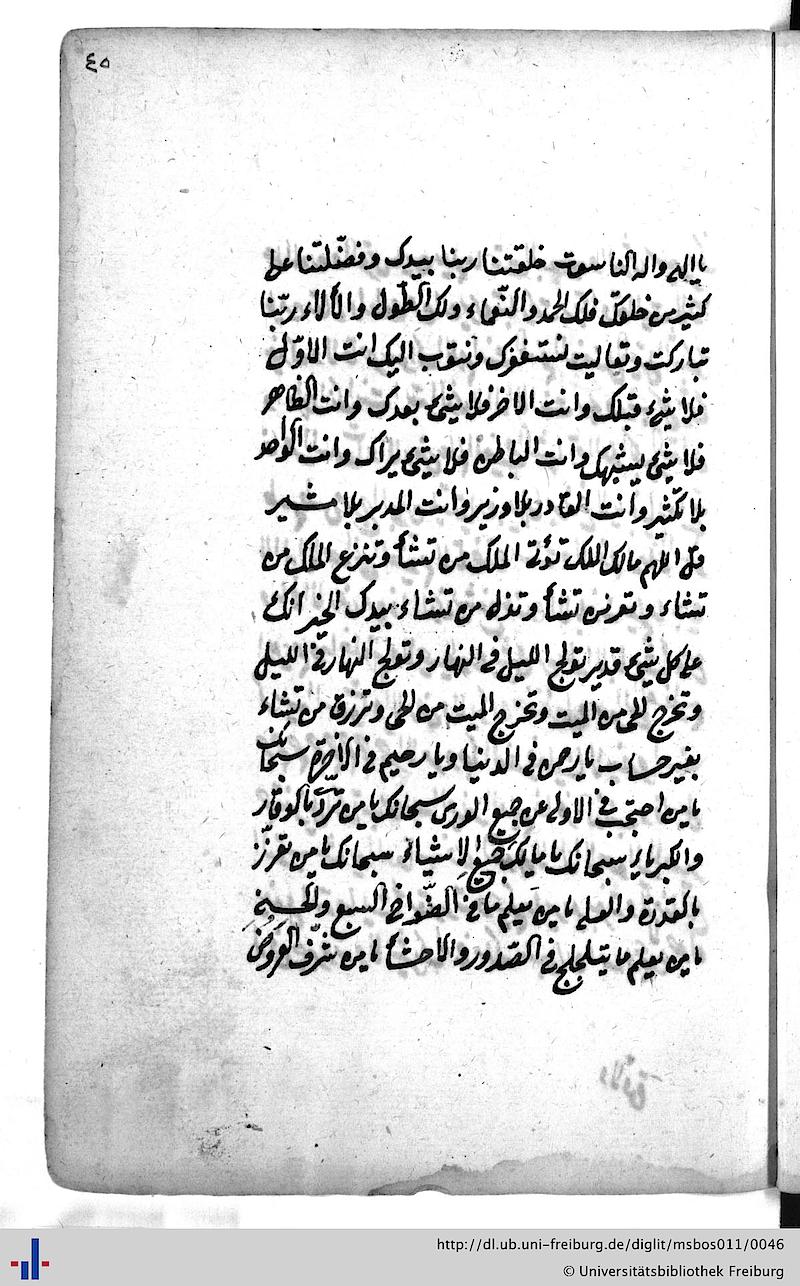 ٤٥
يا الله واله الناسوت خلقتنا ربنا بيدك وفضّلتنا على
كثير من خلقك فلك الحمد والنّعماء ولك الطّول والألاء ربّنا
تباركت وتعاليت نستغفرك ونتوب اليك انت الاوّل
فلا شئ قبلك وانت الاخر فلا شئ بعدك وانت الظاهر
فلا شئ يشبهك وانت الباطن فلا شئ يراك وانت الواحد
بلا تكثير وانت القادر بلا وزير وانت المدبر بلا مشير
قل اللهم مالك الملك تؤتى الملك من تشأ وتنزع الملك من
تشاء وتعز من تشأ وتذل من تشاء بيدك الخير انك
على كل شئ قدير تولج الليل فى النهار وتولج النهار فى الليل
وتخرج الحى من الميت وتخرج الميت من الحى وترزق من تشاء
بغير حساب يا رحمن فى الدنيا ويا رحيم فى الاخرة سبحانك
يا من احتجب فى الاولى عن جميع الورى سبحانك يا من تردّا بالوقار
والكبرياء سبحانك يا مالك جميع الاشياء سبحانك يا من تعزّز
بالقدرة والعلم يا من يعلم ما فى الضّواحى السبع
يا من يعلم ما يتلجلج فى الصّدور والاحشأ يا من شرّف العروض
http://dl.ub.uni-freiburg.de/diglit/msbos011/0046
© Universitätsbibliothek Freiburg